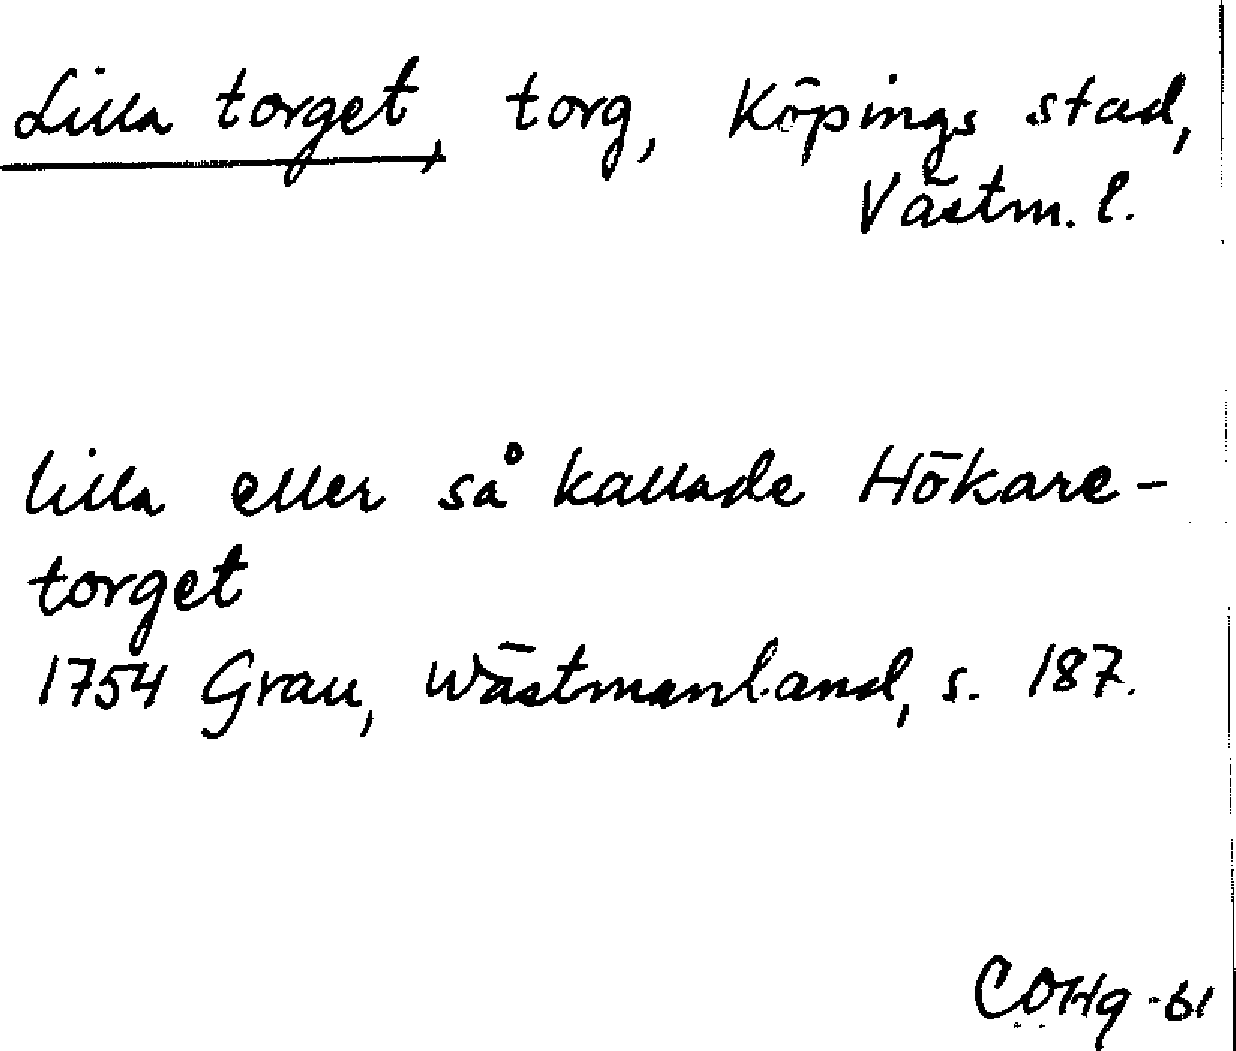 Lilla torget, torg, Köpings stad,
Västm. l.
lilla eller så kallade Hökare-
torget
1754 Grau, Wästmanland, s. 187.
COHg -61